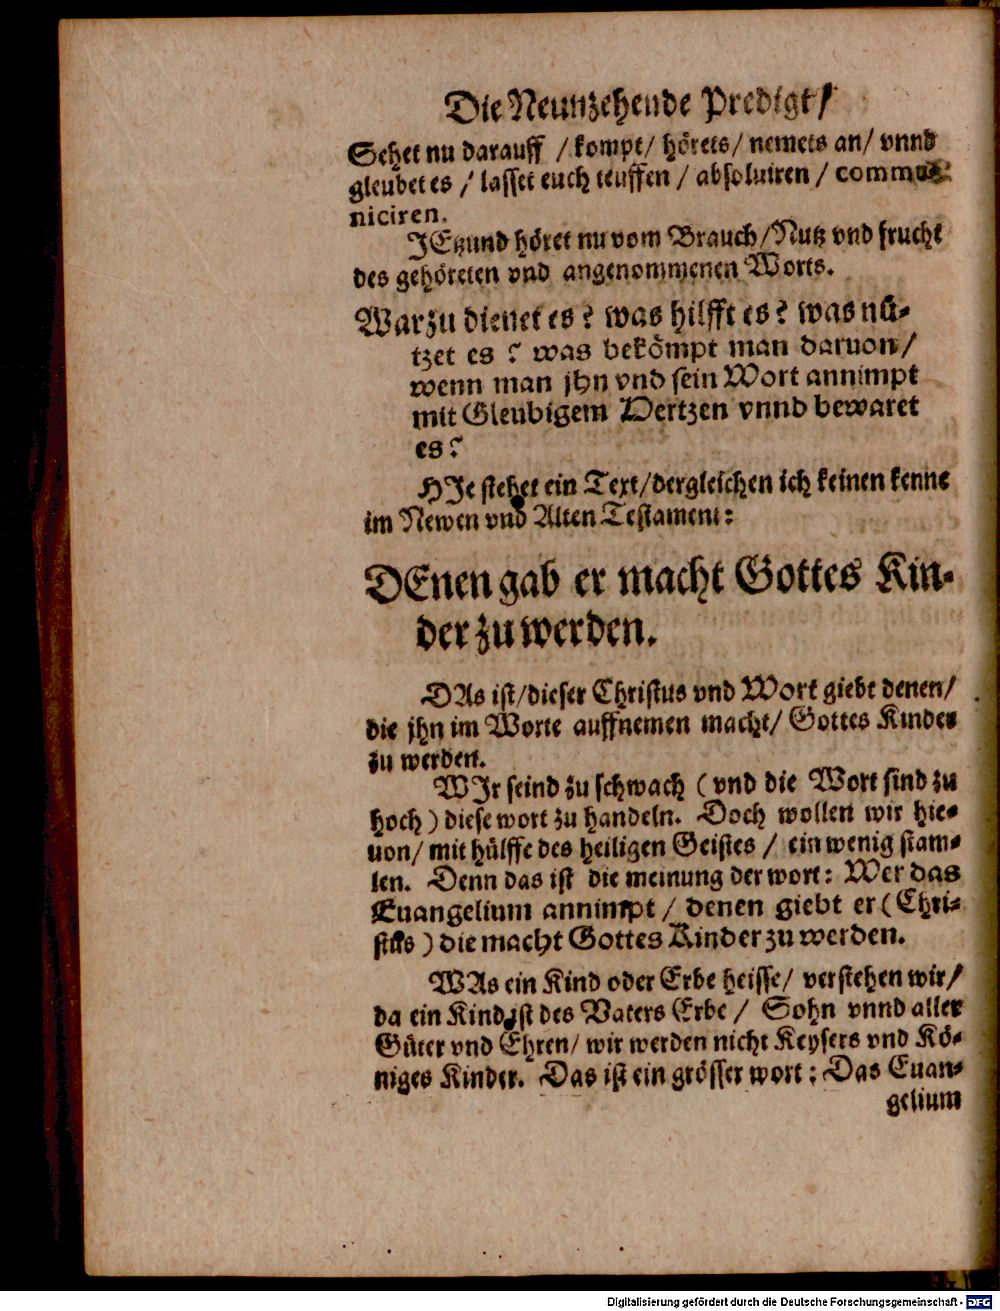 Die Neunzehende Predigt/
Sehet nu darauff / kompt/ hörets/ nemets an/ vnnd
gleubet es / lasset euch teuffen / absoluiren / commu-
niciren.
JEtzund höret nu vom Brauch/Nutz vnd frucht
des gehöreten vnd angenommenen Worts.
Warzu dienet es? was hilfft es? was nü-
tzet es? was bekömpt man daruon/
wenn man jhn vnd sein Wort annimpt
mit Gleubigem Hertzen vnnd bewaret
es?
HJe stehet ein Text/dergleichen ich keinen kenne
im Newen vnd Alten Testament:
DEnen gab er macht Gottes Kin-
der zu werden.
DAs ist/dieser Christus vnd Wort giebt denen/
die jhn im Worte auffnemen macht/ Gottes Kinder
zu werden.
WJr seind zu schwach (vnd die Wort sind zu
hoch) diese wort zu handeln. Doch wollen wir hie-
uon/ mit hülffe des heiligen Geistes / ein wenig stam-
len. Denn das ist die meinung der wort: Wer das
Euangelium annimpt / denen giebt er (Chri-
stus) die macht Gottes Kinder zu werden.
WAs ein Kind oder Erbe heisse/ verstehen wir/
da ein Kind ist des Vaters Erbe / Sohn vnnd aller
Güter vnd Ehren/ wir werden nicht Keysers vnd Kö-
niges Kinder. Das ist ein grösser wort: Das Euan-
gelium
Digitalisierung gefördert durch die Deutsche Forschungsgemeinschaft - DFG